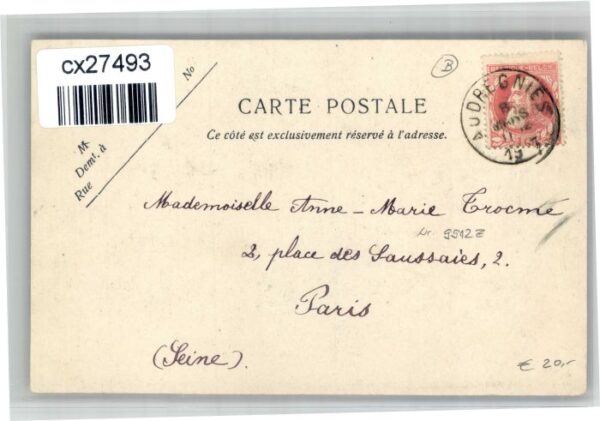 cx27493
No
B
AUDREGNIES
CARTE POSTALE
Ce côté est exclusivement réservé à l'adresse.
M
Demt. à
Rue
Mademoiselle Anne-Marie Trocmé
Nr. 9512Z
2, place des Saussaies, 2.
Paris
(Seine).
€ 20,-